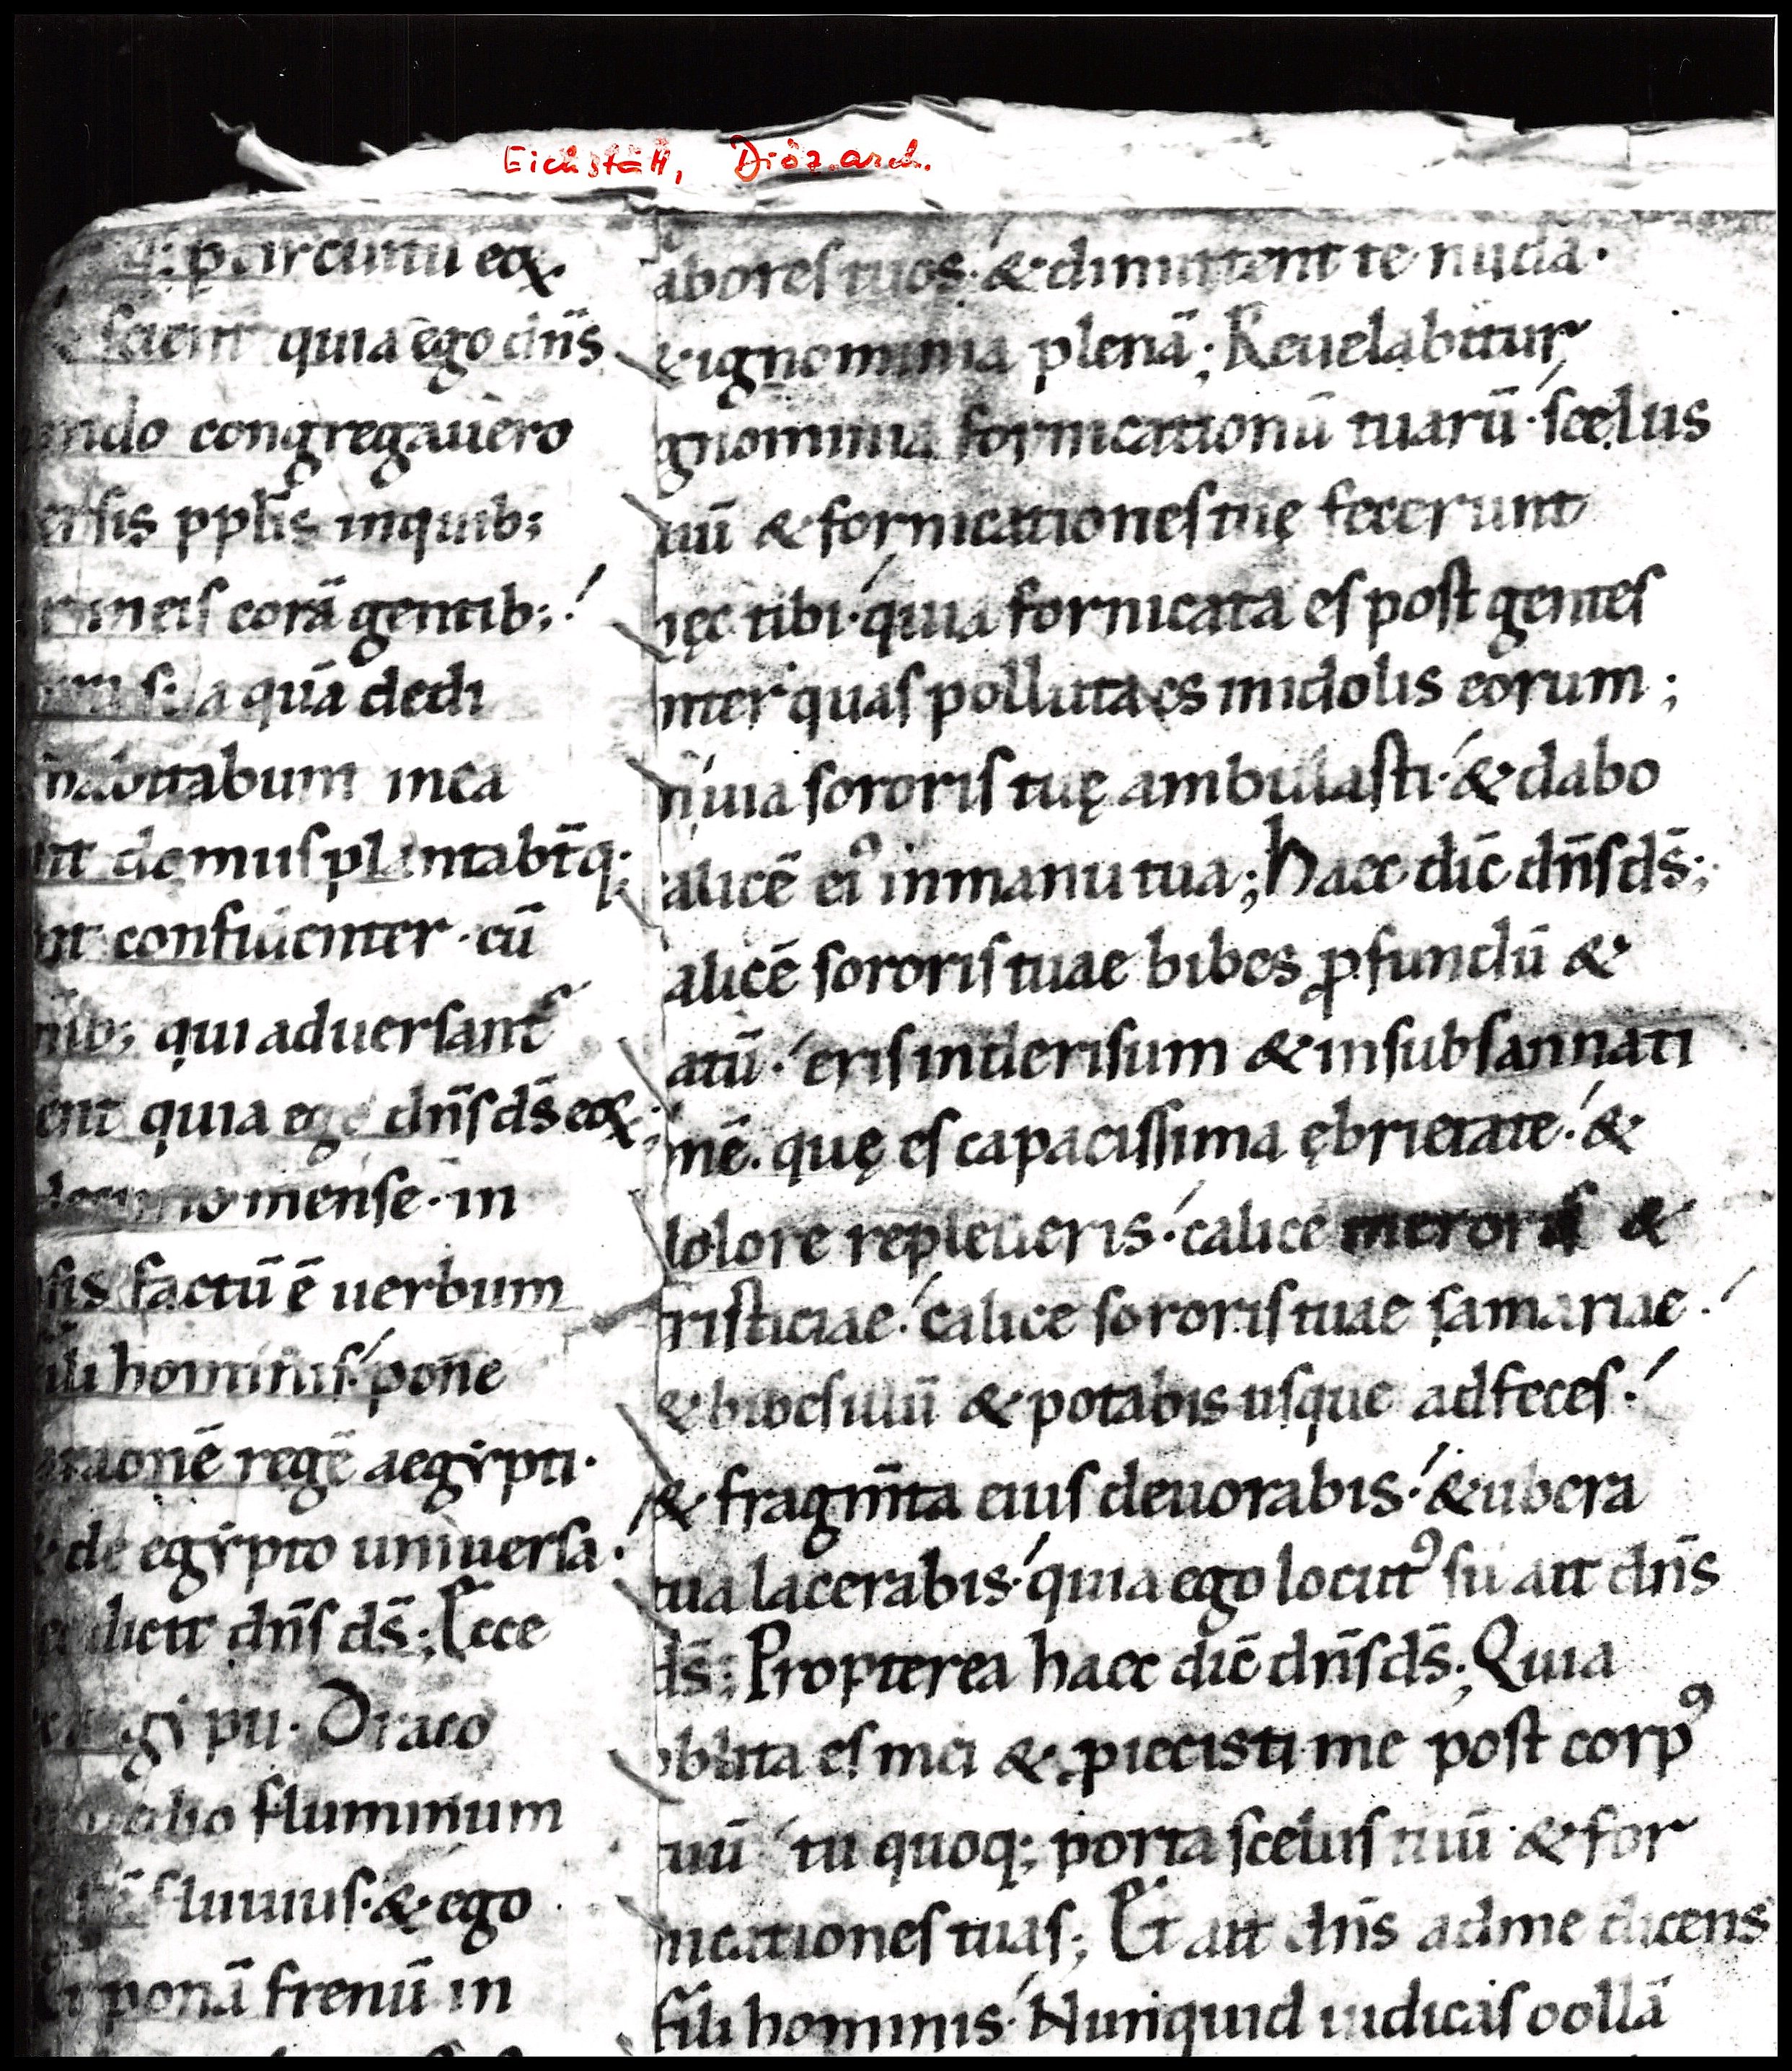 Eichstätt, Diöz.arch.
q; p circuitu eoꝝ.
scient quia ego dn̄s
ando congregauero
ersis ppl̄is inquib;
in eis corā gentib;.
sua quā dedi
habitabunt inea
nt domus plantabt̄q;
nt confidenter · cū
nib; qui aduersant
ent quia ego dn̄s ds̄ eoꝝ;
decimo mense · in
sis factū ē uerbum
ili hominis· pone
araonē regē aegypti·
& de egypto uniuersa·
dicit dn̄s ds̄; Ecce
Draco
fluminum
fluuius· & ego
ponā frenū in
abores tuos· & dimittent te nudā·
& ignominia plenā; Reuelabitur
gnominia fornicationū tuarū· scelus
uū & fornicationes tuę fecerunt
hęc tibi· quia fornicata es post gentes
nter quas polluta es inidolis eorum;
n uia sororis tuę ambulasti· & dabo
alicē ei' inmanu tua; haec dic̄ dn̄s ds̄;
alicē sororis tuae bibes ꝓfundū &
atū· eris inderisum & insubsannati
nē. quę es capacissima ębrietate· &
dolore repleueris· calice meroris &
tristiciae· calice sororis tuae samariae·
& bibes illū & potabis usque adfeces·
& fragm̄ta eius deuorabis· & ubera
tua lacerabis· quia ego locut' sū ait dn̄s
ds̄; Propterea haec dic̄ dn̄s ds̄; Quia
oblita es mei & ꝓiecisti me post corp'
tuū tu quoq; porta scelus tuū· & for
nicationes tuas; Et ait dn̄s adme dicens
fili hominis· Nunquid iudicas oollā